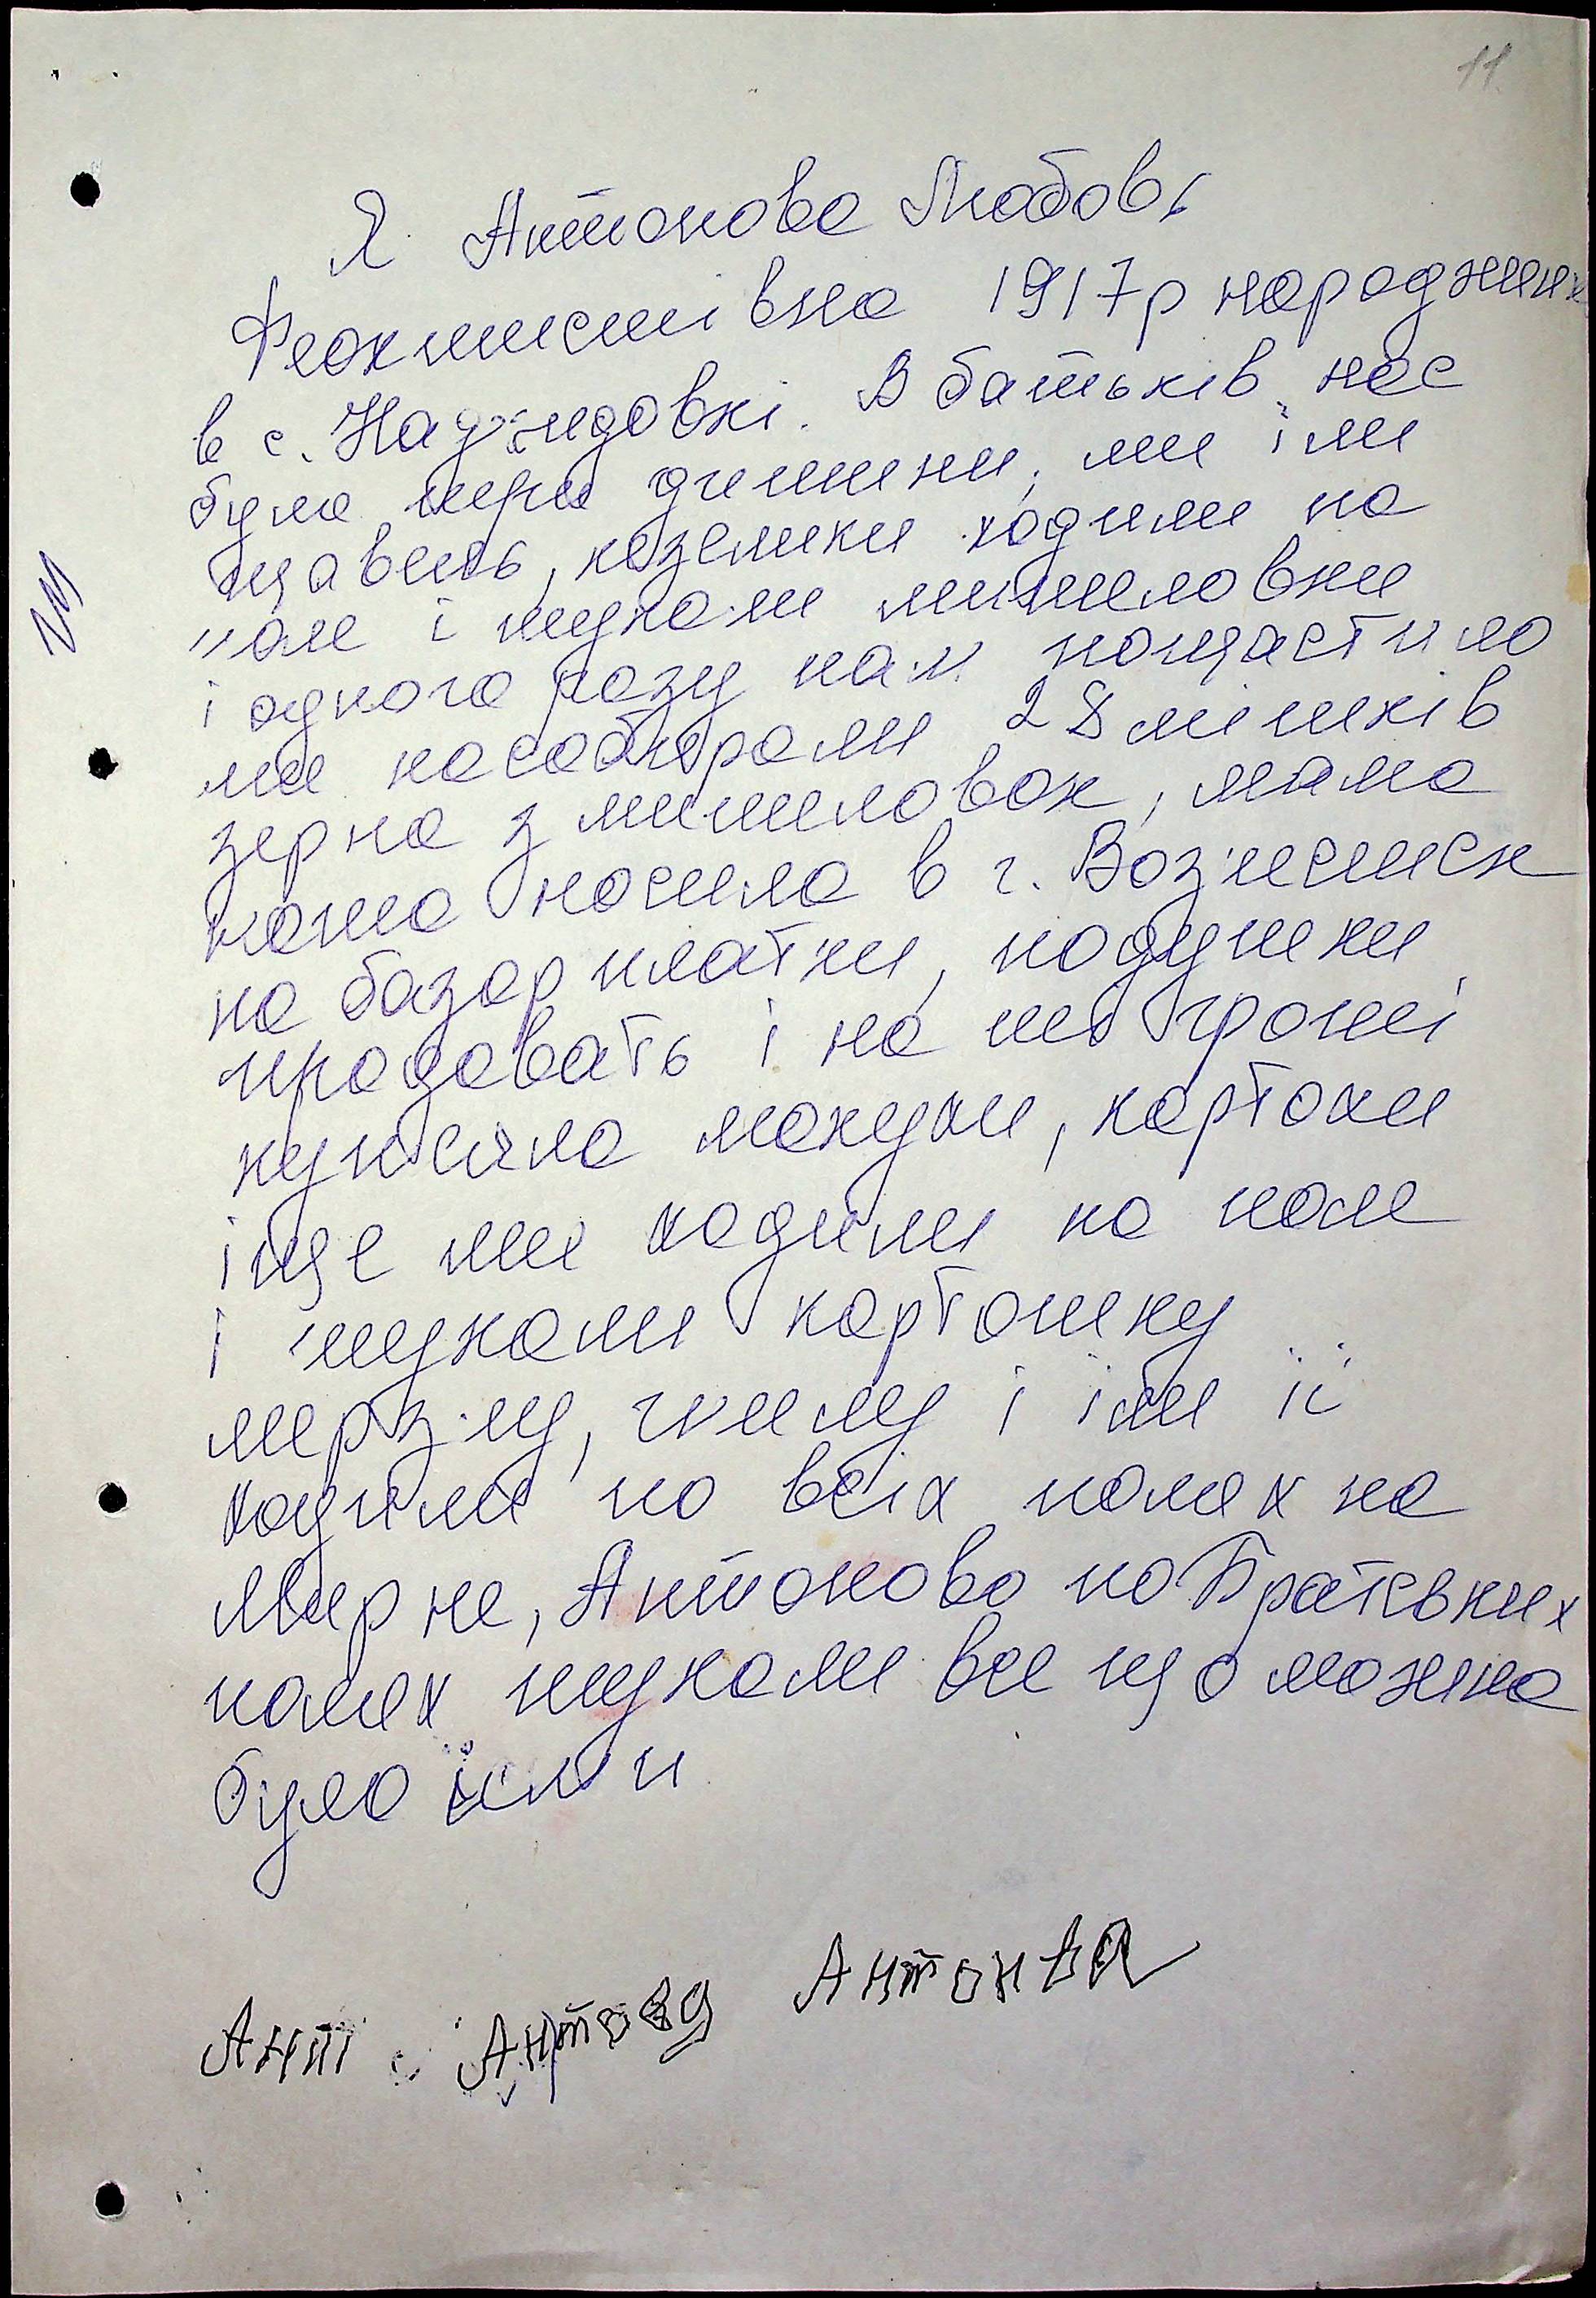 11
Я Антонова Любовь
Феоктистівна 1917р народжен
в с. Надеждовкі. В батьків нас
було три дитини, ми їли
щавель, козелики ходили на
поле і шукали мишиловки
і одного разу нам пощастило
ми насобирали 28 мішків
зерна з мишиловок, мама
наша носила в г. Вознесенск
на базар платки, подушки
продавать і на ті гроші
купляла макухи, картохи
іще ми ходили на поле
і шукали картошку
мерзлу, гнилу і їли її
ходили по всіх полях на
Мирне, Антоново по Братських
полях шукали все що можна
було їсти
Ант Антова Антонва